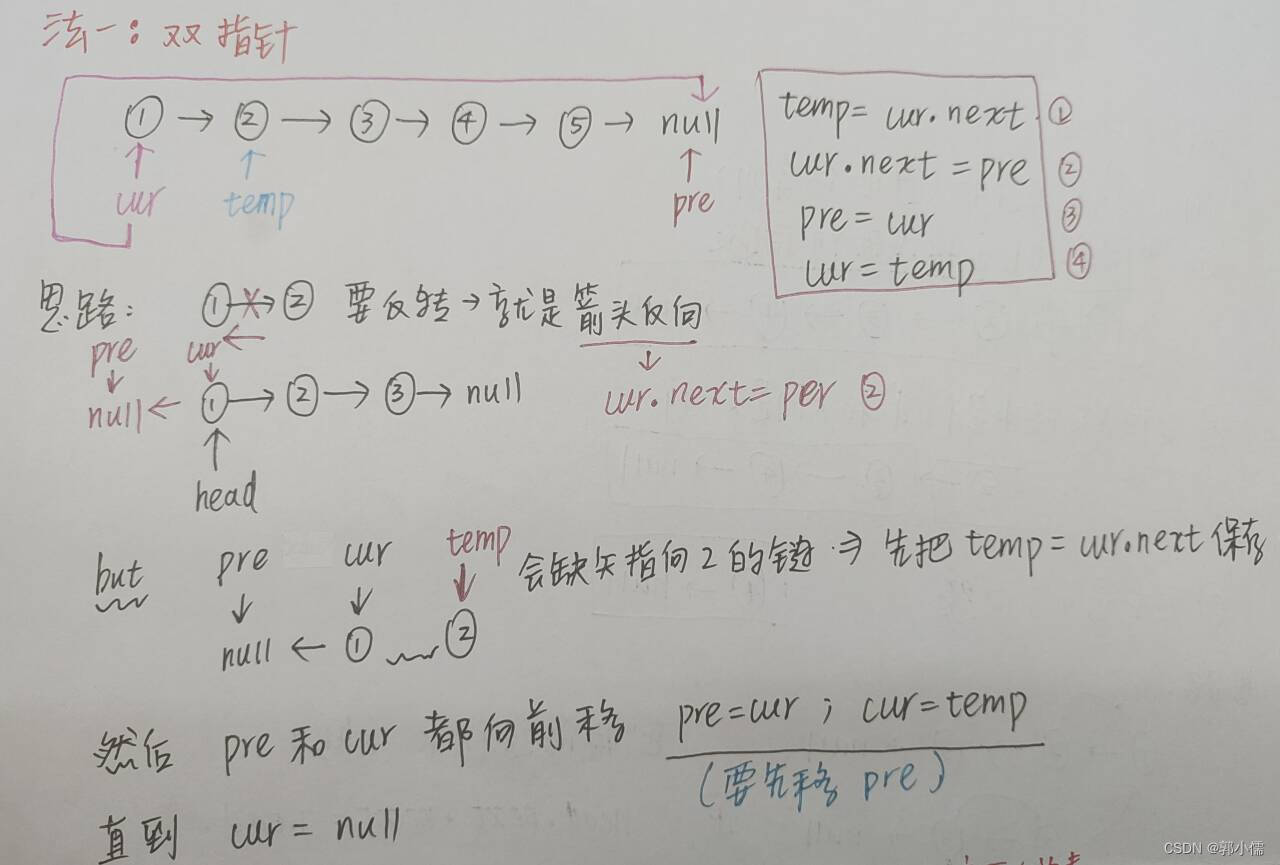 法一：双指针
① → ② → ③ → ④ → ⑤ → null
cur temp pre
temp = cur.next ①
cur.next = pre ②
pre = cur ③
cur = temp ④
思路： ① → ② 要反转 → 就是箭头反向
pre cur ←
null ← ① → ② → ③ → null
cur.next = per ②
head
but pre cur temp 会缺失指向2的链 ⇒ 先把 temp = cur.next 保存
null ← ① ②
然后 pre 和 cur 都向前移 pre=cur ; cur=temp
(要先移 pre)
直到 cur = null
CSDN @郭小儒